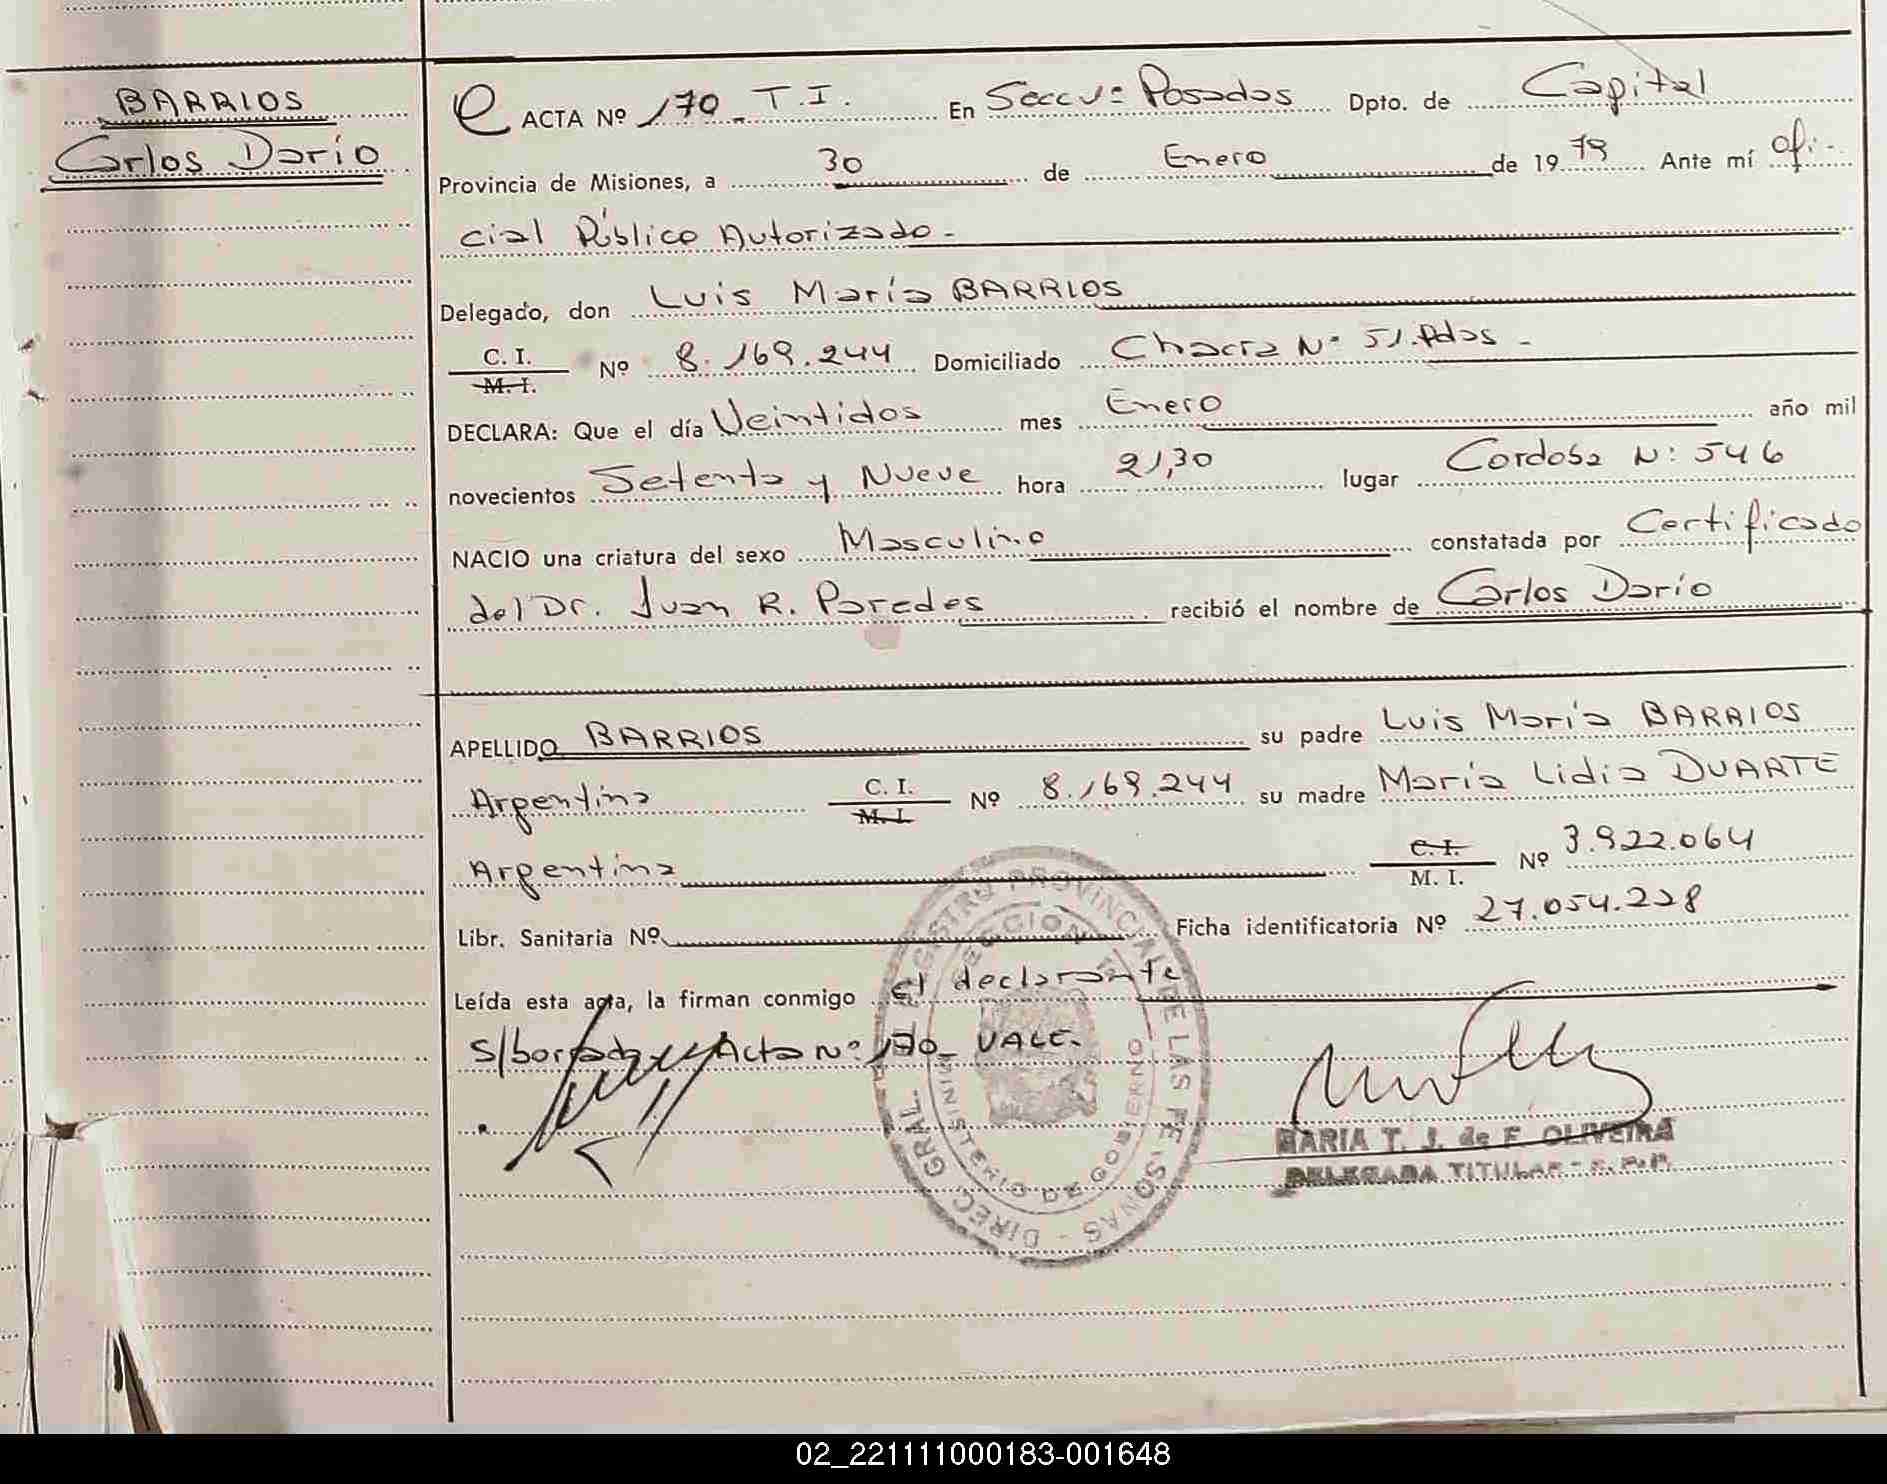 BARRIOS
Carlos Darío
ACTA Nº 170 T.I. En Seccv: Posadas Dpto. de Capital
Provincia de Misiones, a 30 de Enero de 1979 Ante mí ofi-
cial Público Autorizado.-
Delegado, don Luis María BARRIOS
C. I.
M. I. Nº 8.169.244 Domiciliado Chacra Nº 51. Pdas.-
DECLARA: Que el día Veintidos mes Enero año mil
novecientos Setenta y Nueve hora 21,30 lugar Cordoba N: 546
NACIO una criatura del sexo Masculino constatada por Certificado
del Dr. Juan R. Paredes recibió el nombre de Carlos Darío
APELLIDO BARRIOS su padre Luis María BARRIOS
Argentina C. I.
M. I. Nº 8.169.244 su madre María Lidia DUARTE
Argentina C. I.
M. I. Nº 3.922.064
Libr. Sanitaria Nº Ficha identificatoria Nº 27.054.228
Leída esta acta, la firman conmigo el declarante
S/borrado Acta Nº: 170 VALE.
DIREC. GRAL. REGISTRO PROVINCIAL DE LAS PERSONAS
MINISTERIO DE GOBIERNO
MARIA T. J. de F. OLIVEIRA
DELEGADA TITULAR - R.P.P.
02_221111000183-001648